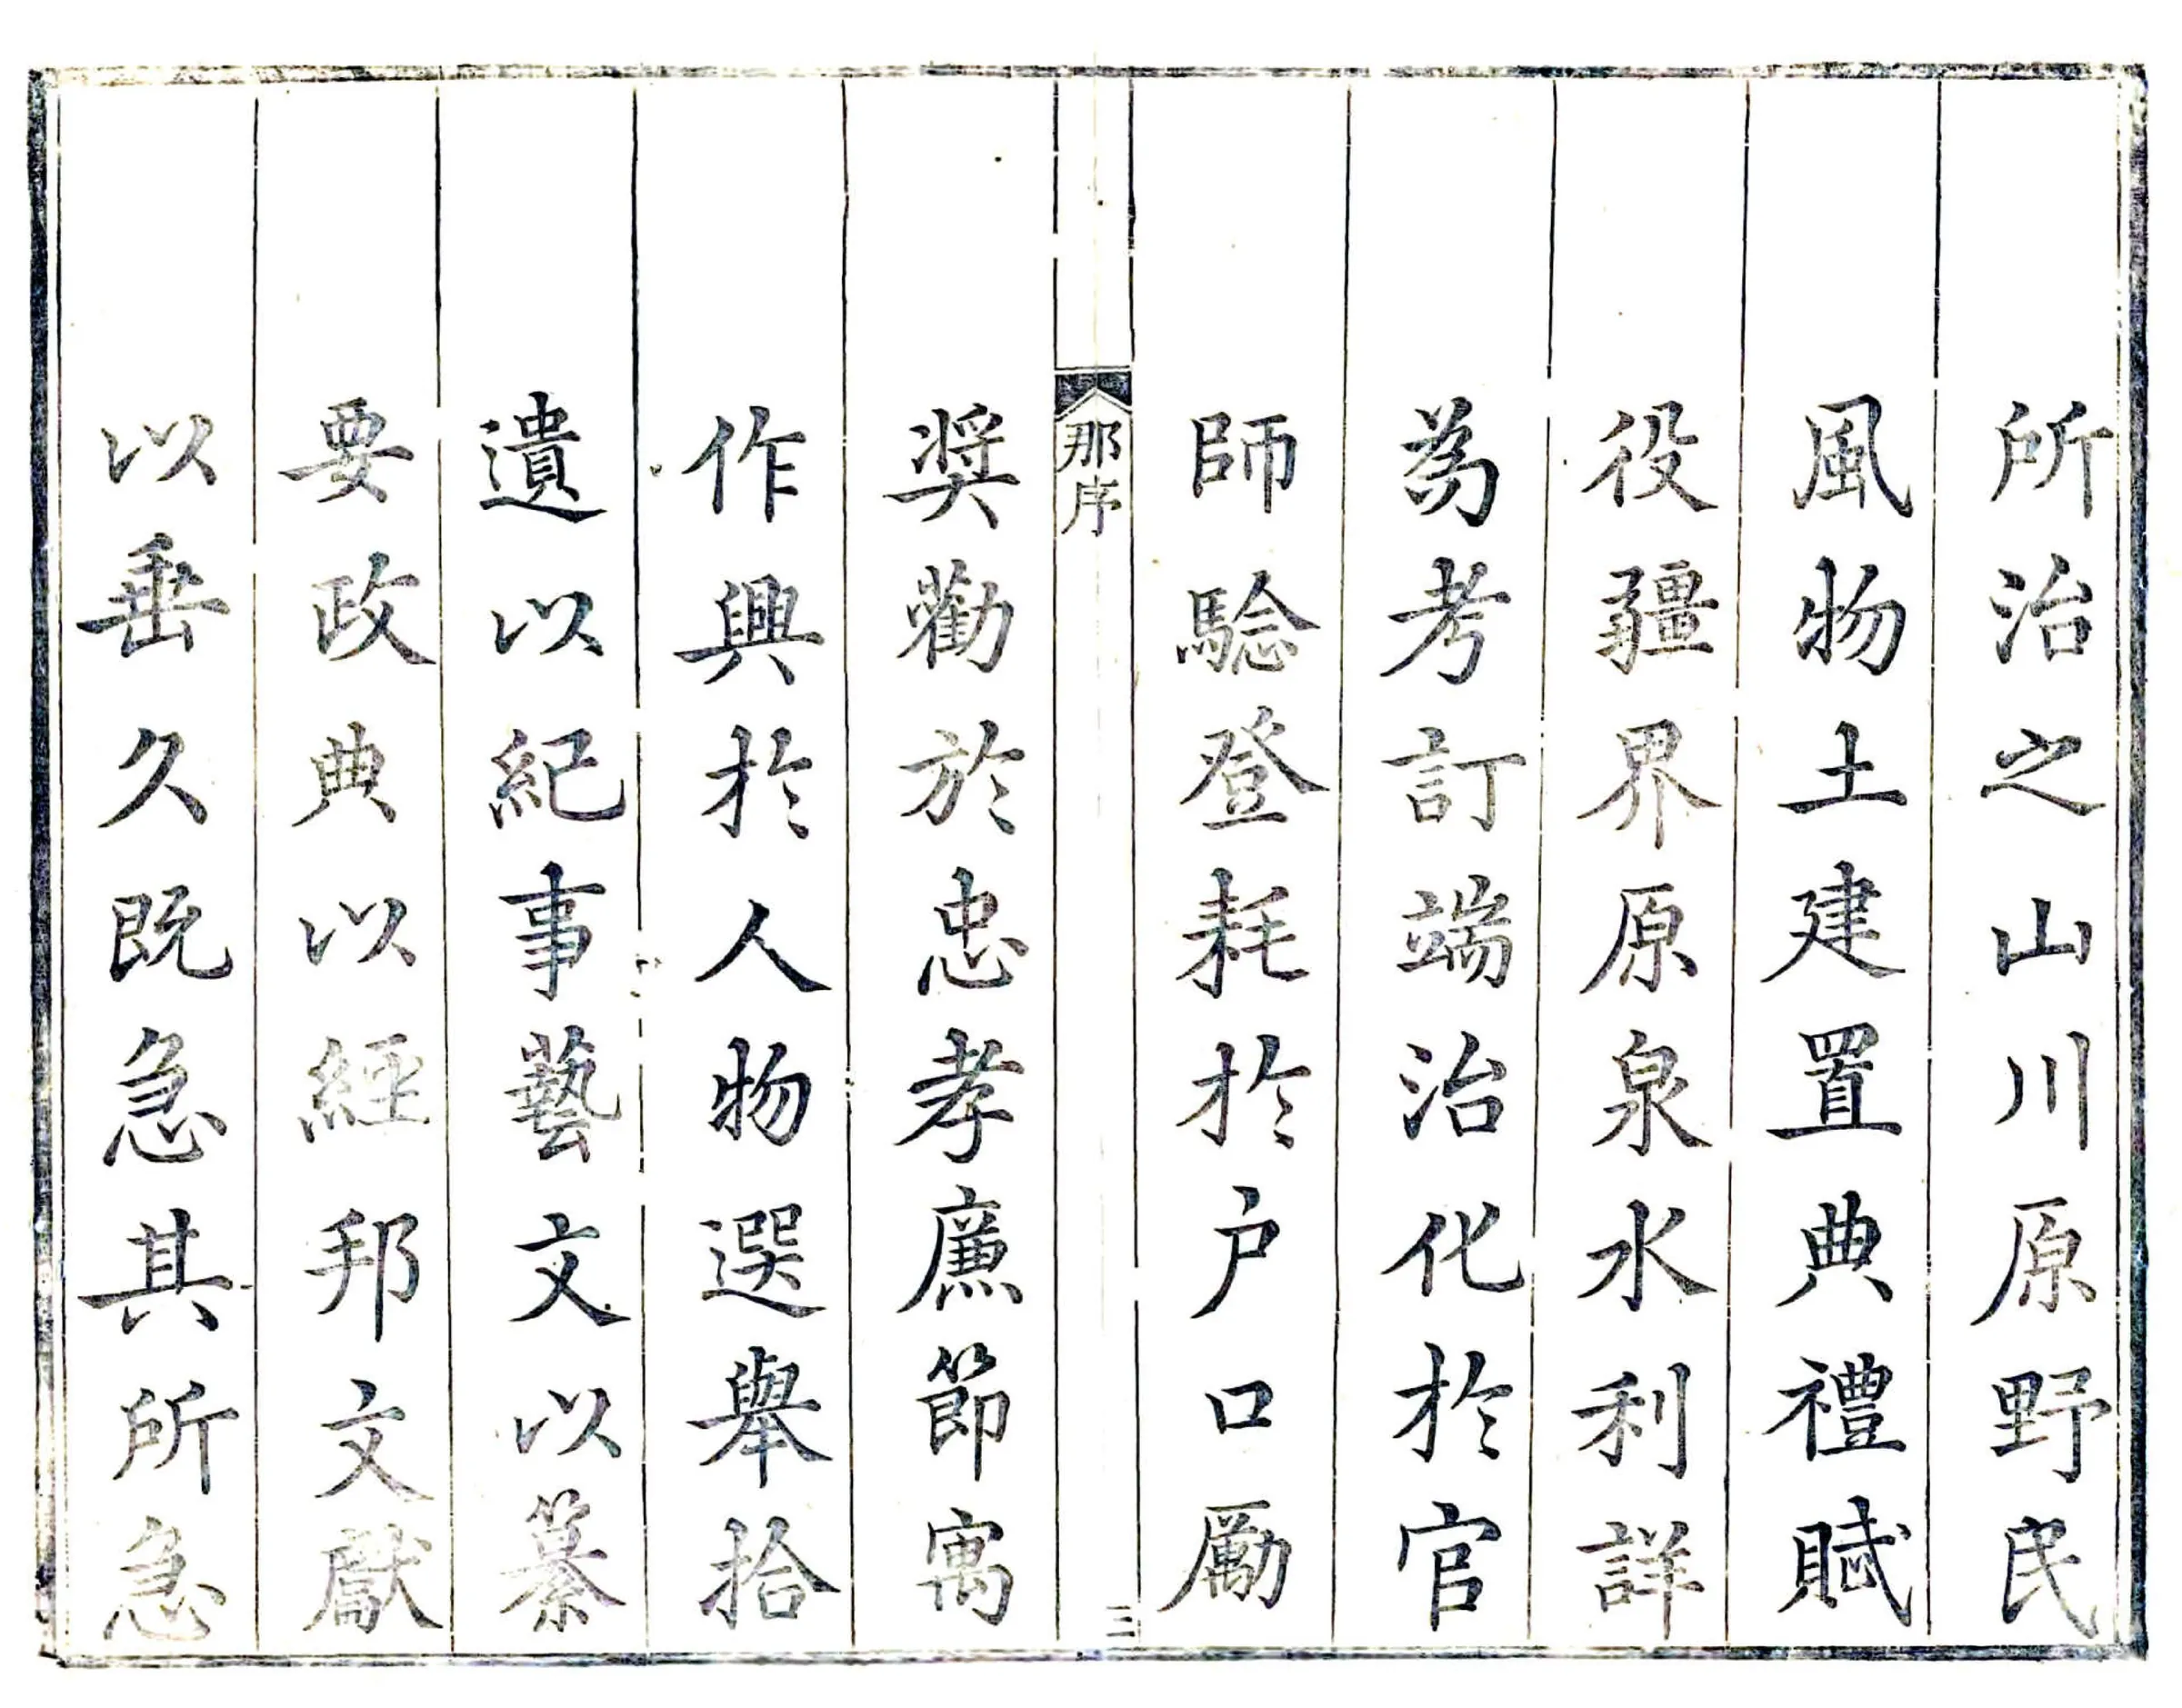 所治之山川原野民
風物土建置典禮賦
役疆界原泉水利詳
為考訂端治化於官
師騐登耗於户口勵
那序
三
奨勸於忠孝廉節寓
作興於人物選舉拾
遺以紀事藝文以纂
要政典以經邦文獻
以垂久既急其所急